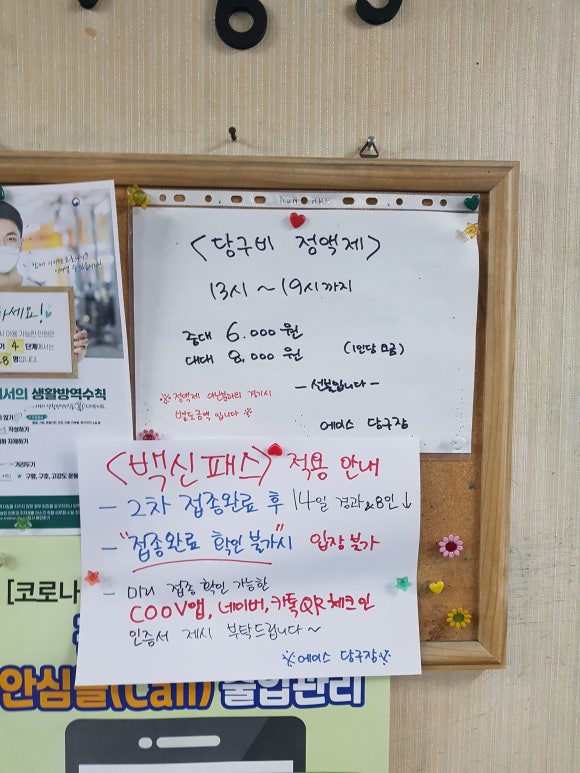 <당구비 정액제>
13시 ~ 19시까지
중대 6.000원
대대 8,000원 (1인당 요금)
- 선불입니다 -
별도금액 입니다
에이스 당구장
<백신패스> 적용 안내
- 2차 접종완료 후 14일 경과&8인↓
- "접종완료 확인 불가"시 입장 불가
- 미리 접종 확인 가능한
COOV앱, 네이버, 카톡QR체크인
인증서 제시 부탁드립니다~
에이스 당구장
하세요!
4 단계에서는
8 명입니다.
에서의 생활방역수칙
작성하기
자제하기
거리두기
구행, 구호, 고강도 운동
[코로나
안심콜(Call) 출입관리